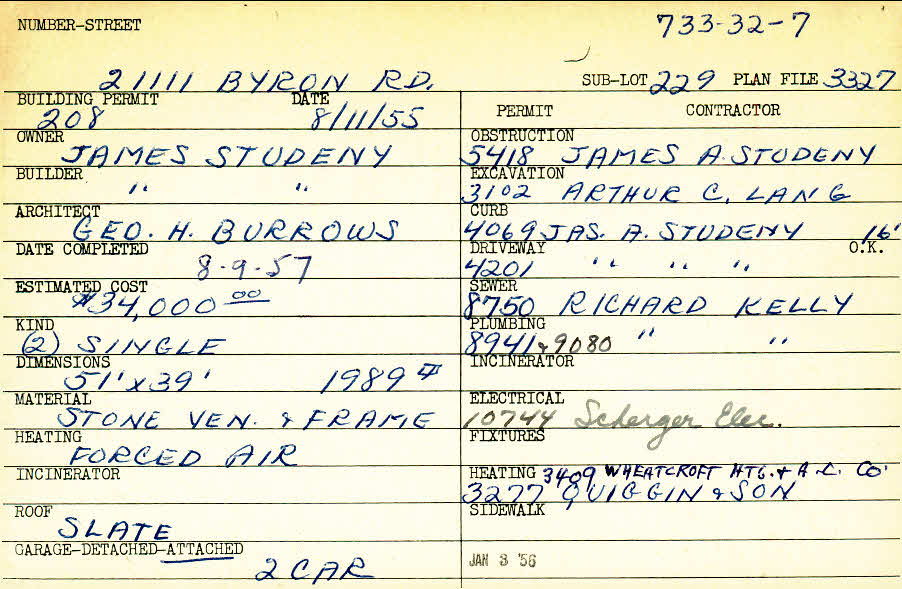 NUMBER-STREET 733-32-7
21111 BYRON RD. SUB-LOT 229 PLAN FILE 3327
BUILDING PERMIT DATE PERMIT CONTRACTOR
208 8/11/55
OWNER OBSTRUCTION
JAMES STUDENY 5418 JAMES A. STUDENY
BUILDER EXCAVATION
" " 3102 ARTHUR C. LANG
ARCHITECT CURB
GEO. H. BURROWS 4069 JAS. A. STUDENY 16'
DATE COMPLETED DRIVEWAY O.K.
8-9-57 4201 " " "
ESTIMATED COST SEWER
$34,000 00 8750 RICHARD KELLY
KIND PLUMBING
(2) SINGLE 8941 & 9080 " "
DIMENSIONS INCINERATOR
51' x 39' 1989 #
MATERIAL ELECTRICAL
STONE VEN. & FRAME 10744 Scherger Elec.
HEATING FIXTURES
FORCED AIR
INCINERATOR HEATING 3409 WHEATCROFT HTG. & A.C. CO.
3277 QUIGGIN & SON
ROOF SIDEWALK
SLATE
GARAGE-DETACHED-ATTACHED
2 CAR JAN 3 '56